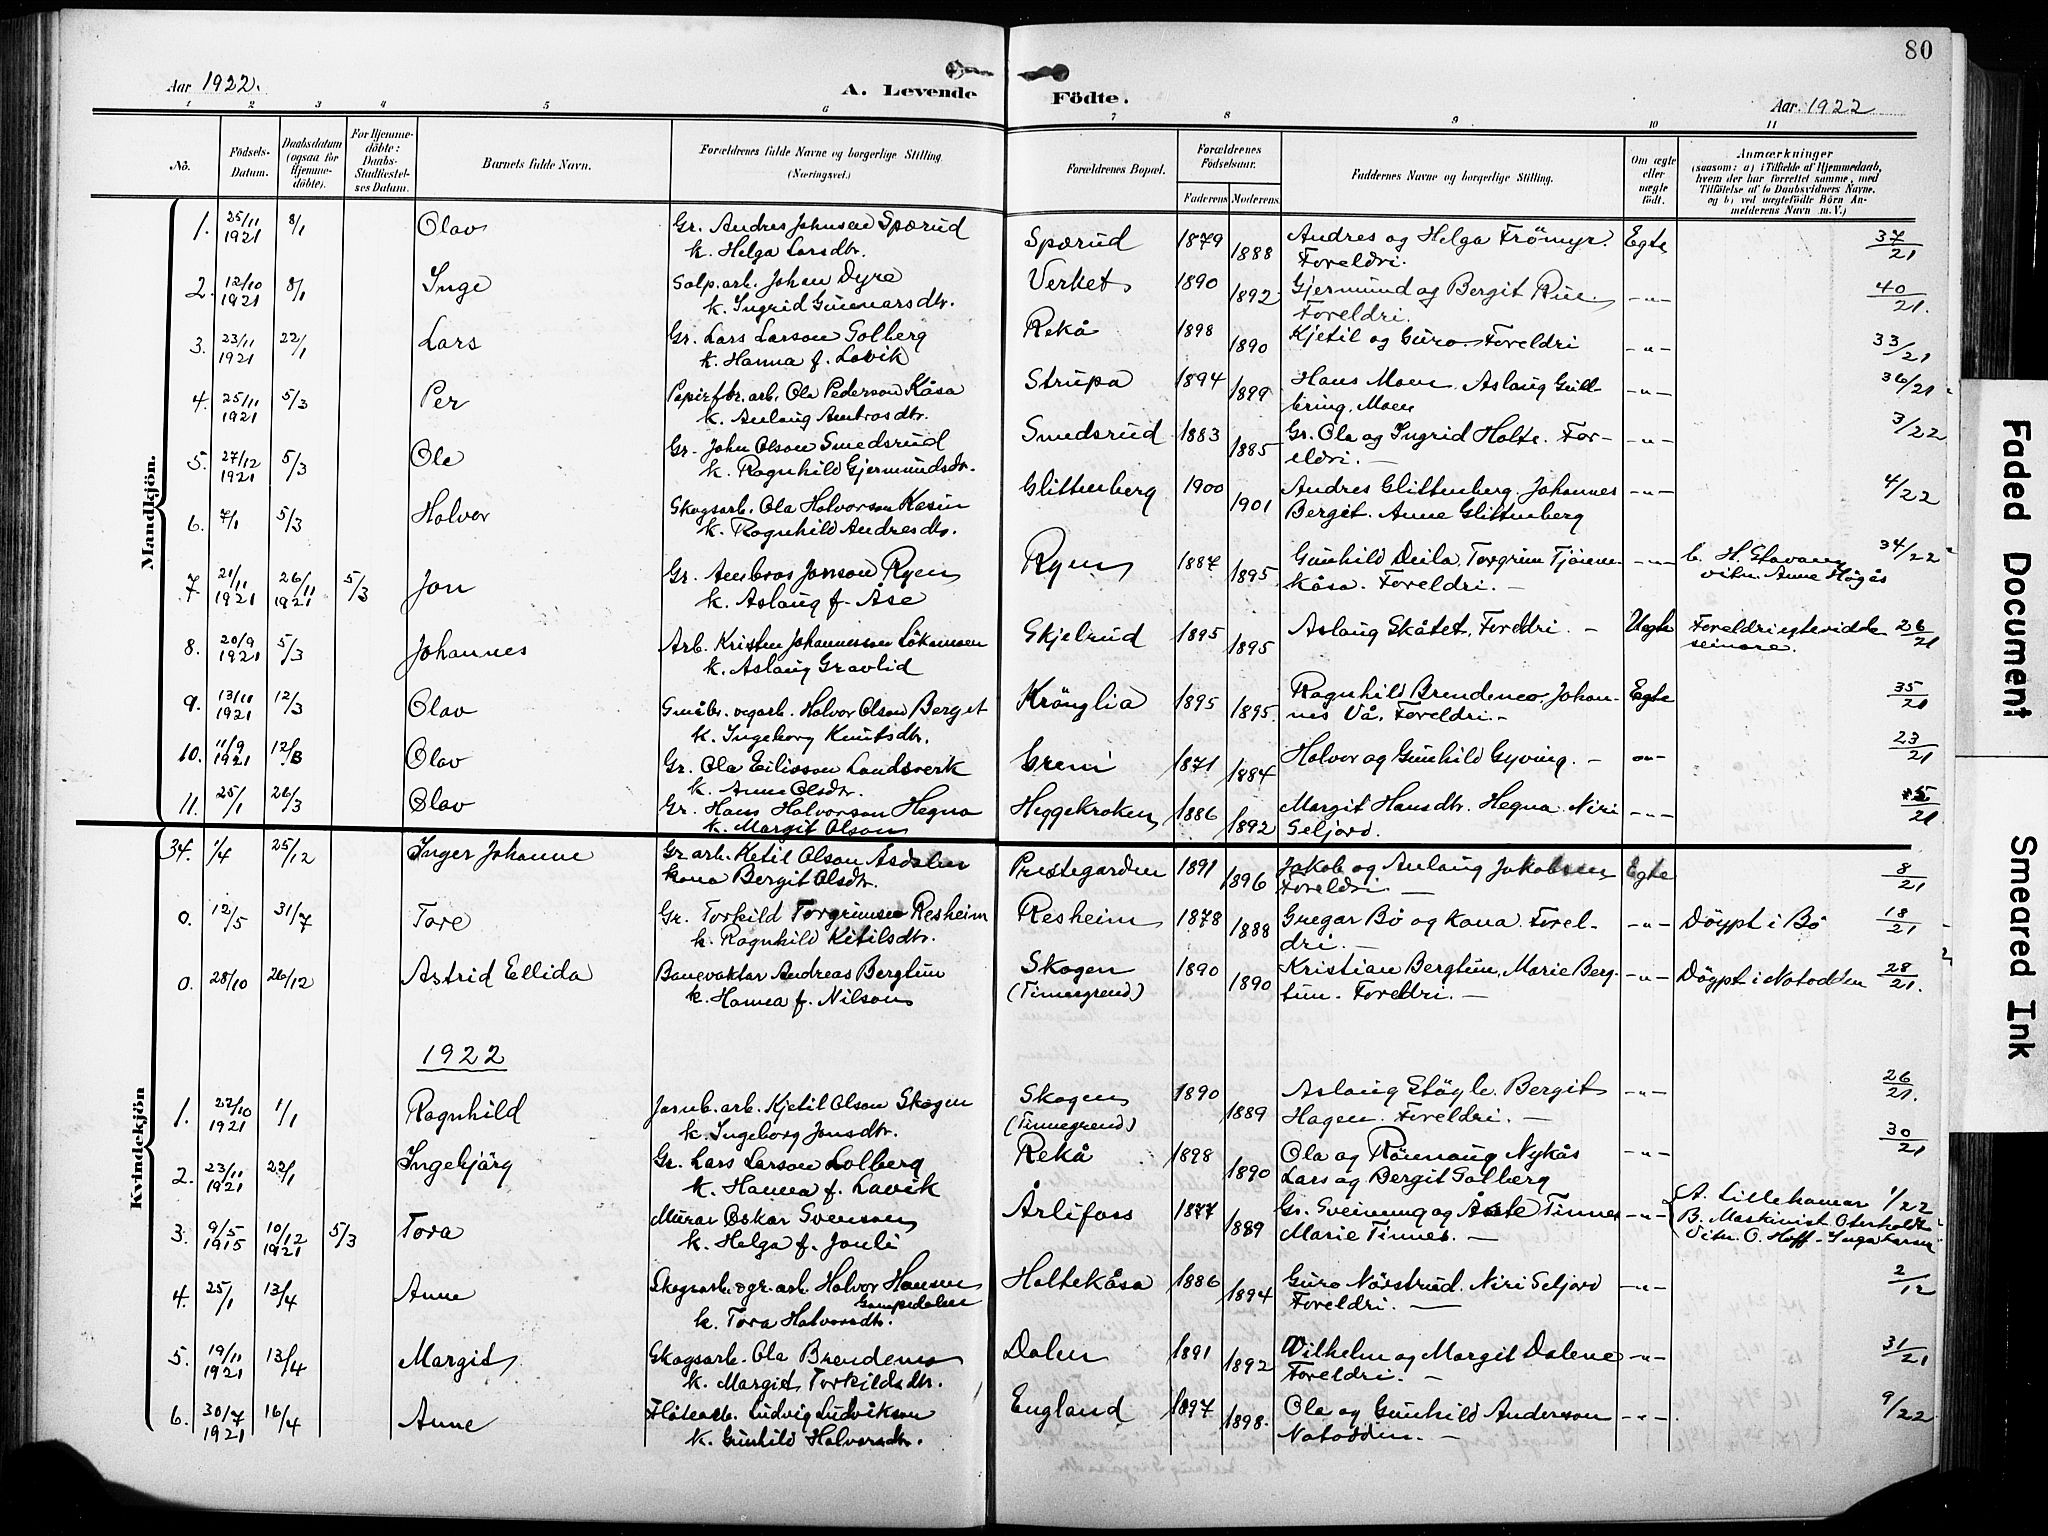 80
Aar 1922.
A. Levende Födte.
Aar 1922
1 2 3 4 5 6 7 8 9 10 11
No.
Födsels-Datum.
Daabsdatum (ogsaa for Hjemmedöbte).
For Hjemmedöbte: Daabs-Stadfæstelses Datum.
Barnets fulde Navn.
Forældrenes fulde Navne og borgerlige Stilling. (Næringsvei.)
Forældrenes Bopæl.
Forældrenes Födselsaar.
Faderens Moderens
Faddernes Navne og borgerlige Stilling.
Om ægte eller uægte födt.
Anmærkninger
(saasom: a) i Tilfælde af Hjemmedaab, hvem der har forrettet samme, med Tilföielse af to Daabsvidners Navne. og b) ved uægtefödte Börn Anmelderens Navn m. V.)
Mandkjön.
1. 25/11 1921 8/1 Olav Gr. Andres Johnsen Spærud Spærud 1879 1888 Andres og Helga Frömyr. Egte 37/21
k. Helga Larsdtr. Foreldri.
2. 12/10 1921 8/1 Inge Salp.arb. Johan Dyre Verket 1890 1892 Gjermund og Bergit Rue. -"- 40/21.
k. Ingrid Gunnarsdtr. Foreldri.
3. 23/11 1921 22/1 Lars Gr. Lars Larson Solberg Rekå 1898 1890 Kjetil og Guro. Foreldri -"- 33/21
k. Hanna f. Lavik
4. 25/11 1921 5/3 Per Papirfbr. arb. Ola Pederson Kåsa Strupa 1894 1899 Hans Moen. Aslaug Gull- -"- 36/21
k. Aslaug Ambrosdtr. bring. Moen
5. 27/12 1921 5/3 Ole Gr. John Olson Smedsrud Smedsrud 1883 1885 Gr. Ola og Ingrid Holte. For- -"- 3/22
k. Ragnhild Gjermundsdr. eldri. —
6. 7/1 5/3 Halvor Skogsarb. Ola Halvorson Kasin Glittenberg 1900 1901 Andres Glittenberg. Johannes -"- 4/22
k. Ragnhild Andresdtr. Bergit. Anne Glittenberg
7 21/11 1921 26/11 1921 5/3 Jon Gr. Ambros Jonson Ryen Ryen 1887 1895 Gunhild Deila. Torgrim Tjönn- -"- 34/22
k. Aslaug f. Åse kåsa. Foreldri. — vitn. Anne Högås
8. 20/9 1921 5/3 Johannes Arb. Kristen Johannesson Skjelrud 1895 1895 Aslaug Skåtet. Foreldri. — Uegte Foreldri egtevidde 26/21
k. Aslaug Gravlid seinare.
9. 13/11 1921 12/3 Olav Småbr. vegarb. Halvor Olson Berget Krånglia 1895 1895. Ragnhild Brendemo. Johan- Egte 35/21
k. Ingeborg Knutsdtr. nes Vå. Foreldri. —
10. 11/9 1921 12/3 Olav Gr. Ola Eilisson Landsverk Greni 1871 1884 Halvor og Gunhild Gyving. — -"- 23/21
k. Anne Olsdtr.
11. 25/1 26/3 Olav Gr. Hans Halvorson Hegna Heggekroken 1886 1892 Margit Hansdtr. Hegna. Niri -"- 5/21
k. Margit Olson Seljord.
Kvindekjön
34. 1/4 25/12 Inger Johanne Gr.arb. Ketil Olson Åsdalen Prestegarden 1891 1896 Jakob og Aslaug Jakobsen Egte 8/21
kona Bergit Olsdtr. Foreldri —
0. 12/5 31/7 Tore Gr. Torkild Torgrimsen Resheim Resheim 1878 1888 Gregar Bö og kona. Forel- -"- Döypt i Bö 18/21
k. Ragnhild Ketilsdtr. dri. —
0. 28/10 26/12 Astrid Ellida Banevaktar Andreas Berglun Skogen 1890 1890 Kristian Berglun, Marie Berg- -"- Döypt i Notodden 28/21.
k. Hanna f. Nilson (Tinnegrend) lun. Foreldri. —
1922
1. 22/10 1921 1/1 Ragnhild Jarnb. arb. Kjetil Olson Skogen Skogen 1890 1889 Aslaug Stöyle. Bergit -"- 26/21.
k. Ingeborg Jonsdtr. (Tinnegrend) Hagen. Foreldri. —
2. 23/11 1921 22/1 Ingebjörg Gr. Lars Larson Solberg Rekå 1898 1890 Ola og Rönnaug Nykås -"- 30/21
k. Hanna f. Lavik Lars og Bergit Solberg
3. 9/5 1915 10/12 1921 5/3 Tora Murar Oskar Svenson Årlifoss 1877 1889 Gr. Sveinung og Åste Tinnes -"- A. Lillehamar 1/22
k. Helga f. Jonli Marie Tinnes. — B. Maskinist Oterholt
Vitn. O. Hoff - Inga Larsen
4. 25/1 13/4 Anne Skogsarb. gr. arb. Halvor Hansen Holtekåsa 1886 1894 Guro Nörstrud. Niri Seljord -"- 2/12
Gampedalen
k. Tora Halvorsdtr. Foreldri. —
5. 19/11 1921 13/4 Margit Skogsarb. Ola Brendemo Dalen 1891 1892 Wilhelm og Margit Dalene -"- 31/21
k. Margit Torkildsdtr. Foreldri. —
6. 30/7 1921 16/4 Anne Flötearb. Ludvig Ludvikson England 1897 1898. Ola og Gunhild Anderson -"- 9/22
k. Gunhild Halvorsdtr. Notodden. —
Faded Document
Smeared Ink